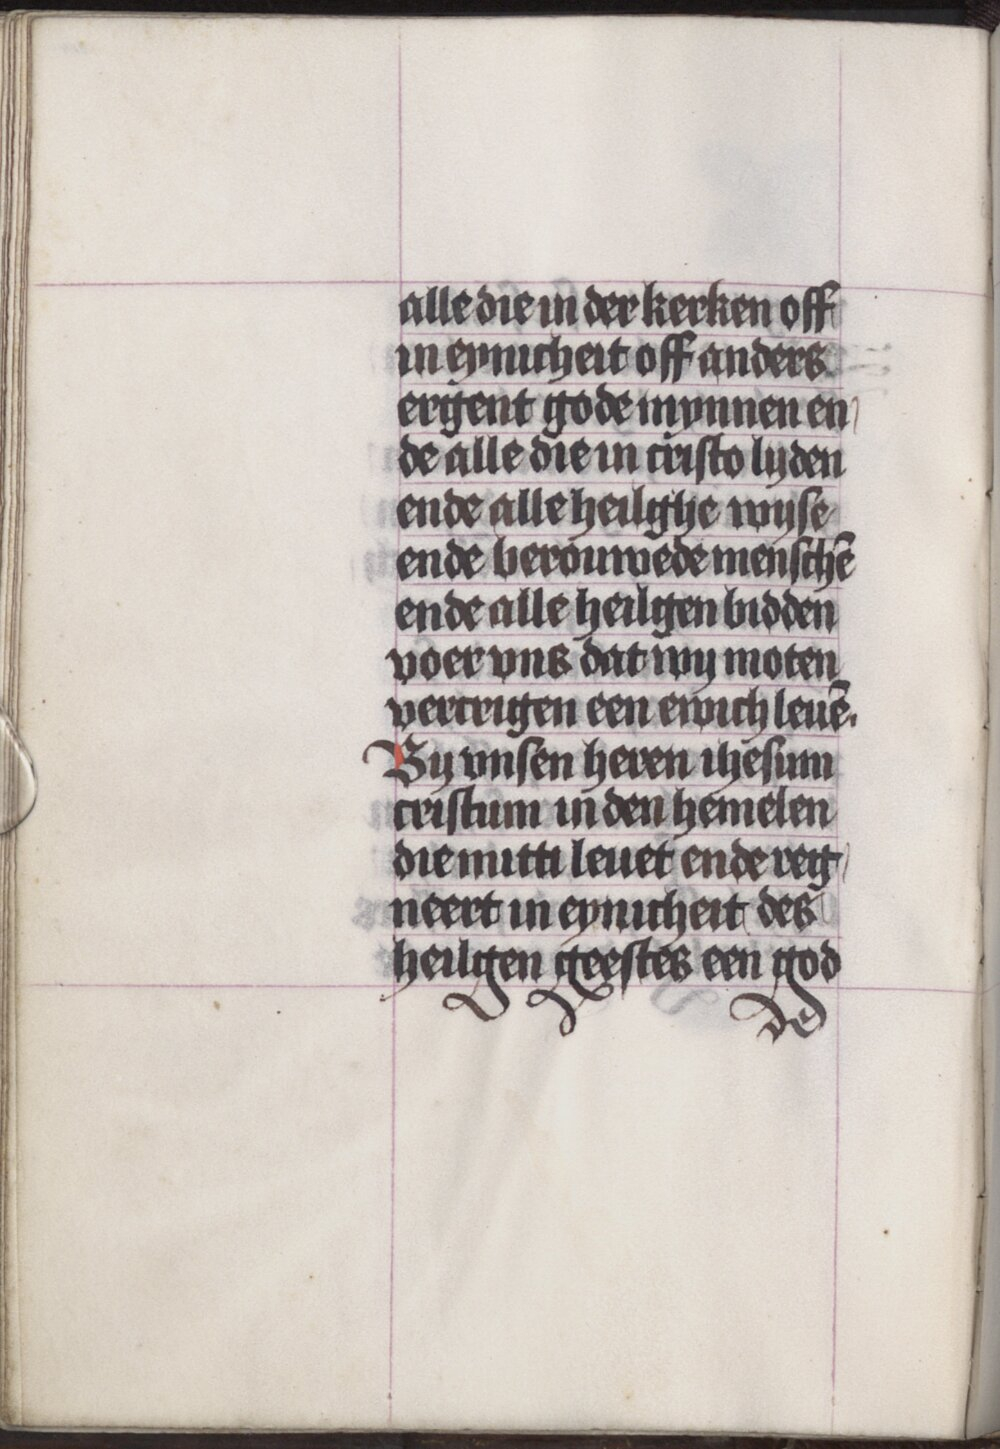 alle die in der kerken off
in eynicheit off anders
ergent gode mynnen en
de alle die in cristo lyden
ende alle heilghe wijse
ende berouwede menschē
ende alle heilgen bidden
voer vns dat wij moten
vercrigen een ewich leuē.
By vnsen heren ihesum
cristum in den hemelen
die mitti leuet ende reg
neert in eynicheit des
heilgen geestes een god